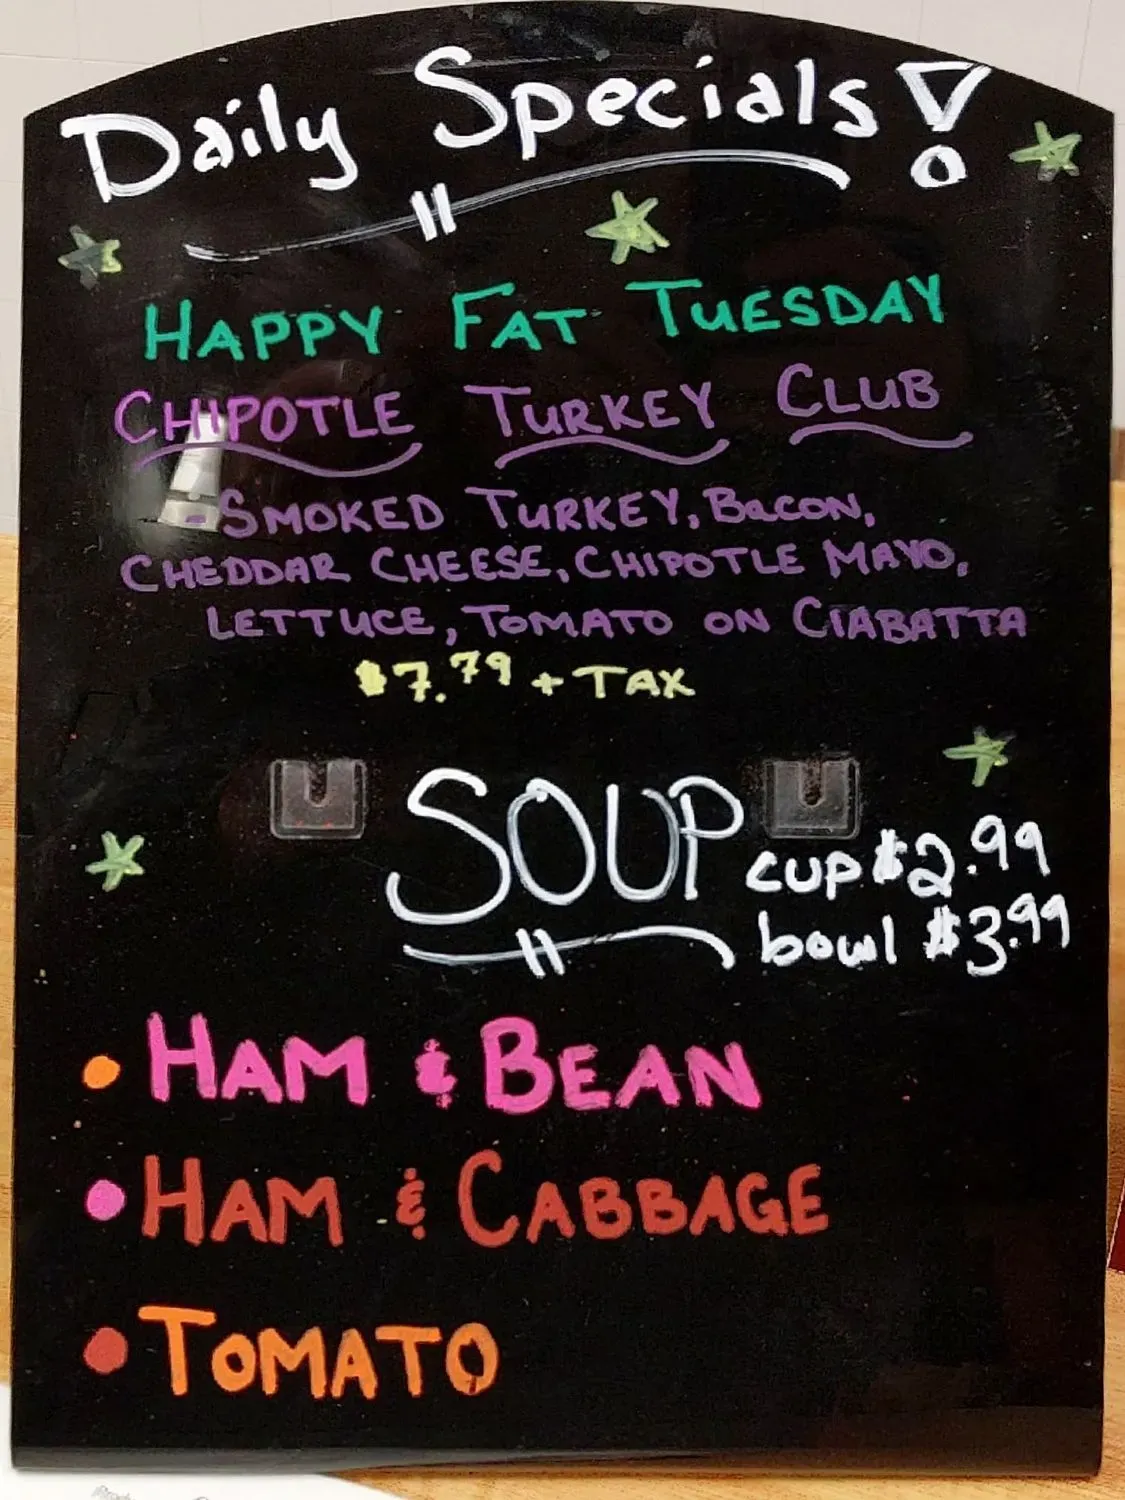 Daily Specials!
HAPPY FAT TUESDAY
CHIPOTLE TURKEY CLUB
-SMOKED TURKEY, BACON,
CHEDDAR CHEESE, CHIPOTLE MAYO,
LETTUCE, TOMATO ON CIABATTA
$7.79 + TAX
SOUP
cup $2.99
bowl $3.99
• HAM & BEAN
• HAM & CABBAGE
• TOMATO